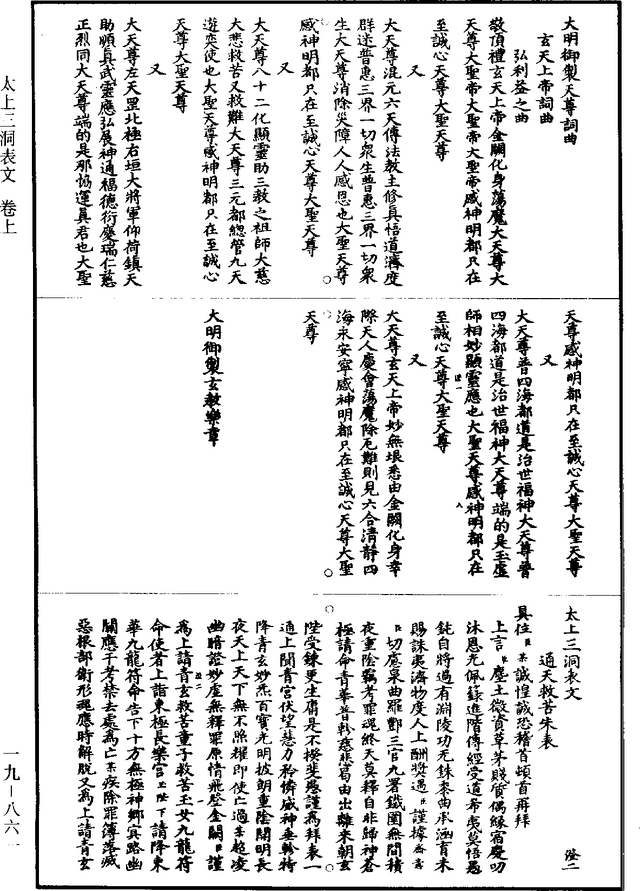 大明御製天尊詞曲
玄天上帝詞曲
弘利益之曲
敬頂禮玄天上帝金闕化身蕩魔大天尊大
天尊大聖帝大聖帝大聖帝感神明都只在
至誠心天尊大聖天尊
又
大天尊混元六天傳法教主修真悟道濟度
群迷普惠三界一切衆生普惠三界一切衆
生大天尊消除災障人人感恩也大聖天尊
感神明都只在至誠心天尊大聖天尊
又
大天尊八十二化顯靈助三教之祖師大慈
大悲救苦又救難大天尊三元都總管九天
遊奕使也大聖天尊感神明都只在至誠心
天尊大聖天尊
又
大天尊左天罡北極右垣大將軍仰荷鎮天
助順真武靈應弘展神通福德衍慶瑞仁慈
正烈同大天尊端的是那協運真君也大聖
天尊感神明都只在至誠心天尊大聖天尊
又
大天尊普四海都道是治世福神大天尊普
四海都道是治世福神大天尊端的是玉虛
師相妙顯靈應也大聖天尊感神明都只在
至誠心天尊大聖天尊
又
大天尊玄天上帝妙無垠悉由金闕化身幸
際天人慶會蕩魔除厄難則見六合清靜四
海永安寧感神明都只在至誠心天尊大聖
天尊
大明御製玄教樂章
太上三洞表文
陞二
通天救苦朱表
具位臣某誠惶誠恐稽首頓首再拜
上言臣塵土微資草茅賤質偶緣宿慶叨
沐恩光佩籙進階傳經受道希夷莫悟愚
鈍自將過有淵陵功无銖黍曲承涵育未
賜誅夷濟物度人上酬獎遇臣謹據齋意
臣切慮泉曲羅酆三官九署鐵圍無間積
夜重陰羈考罪魂終天莫釋自非歸神蒼
極請命青華普軫慈悲曷由出離來朝玄
陛受鍊更生庸是不揆斐愚謹為拜表一
通上聞青宮伏望慈力矜憐威神垂軫特
降青玄妙炁百寶光明披朗重陰開明長
夜天上天下無不照耀即使亡過某超凌
幽暗證妙虛無釋罪原情飛登金闕臣謹
為上請青玄救苦童子救苦玉女九龍符
命使者上詣東極長樂宮玉陛下請降東
華九龍符命告下十方無極神鄉真路幽
關應于考禁去處為亡某疾除罪簿落滅
惡根部衛形魂應時解脫又為上請青玄
太上三洞表文 卷上
一九－八六一